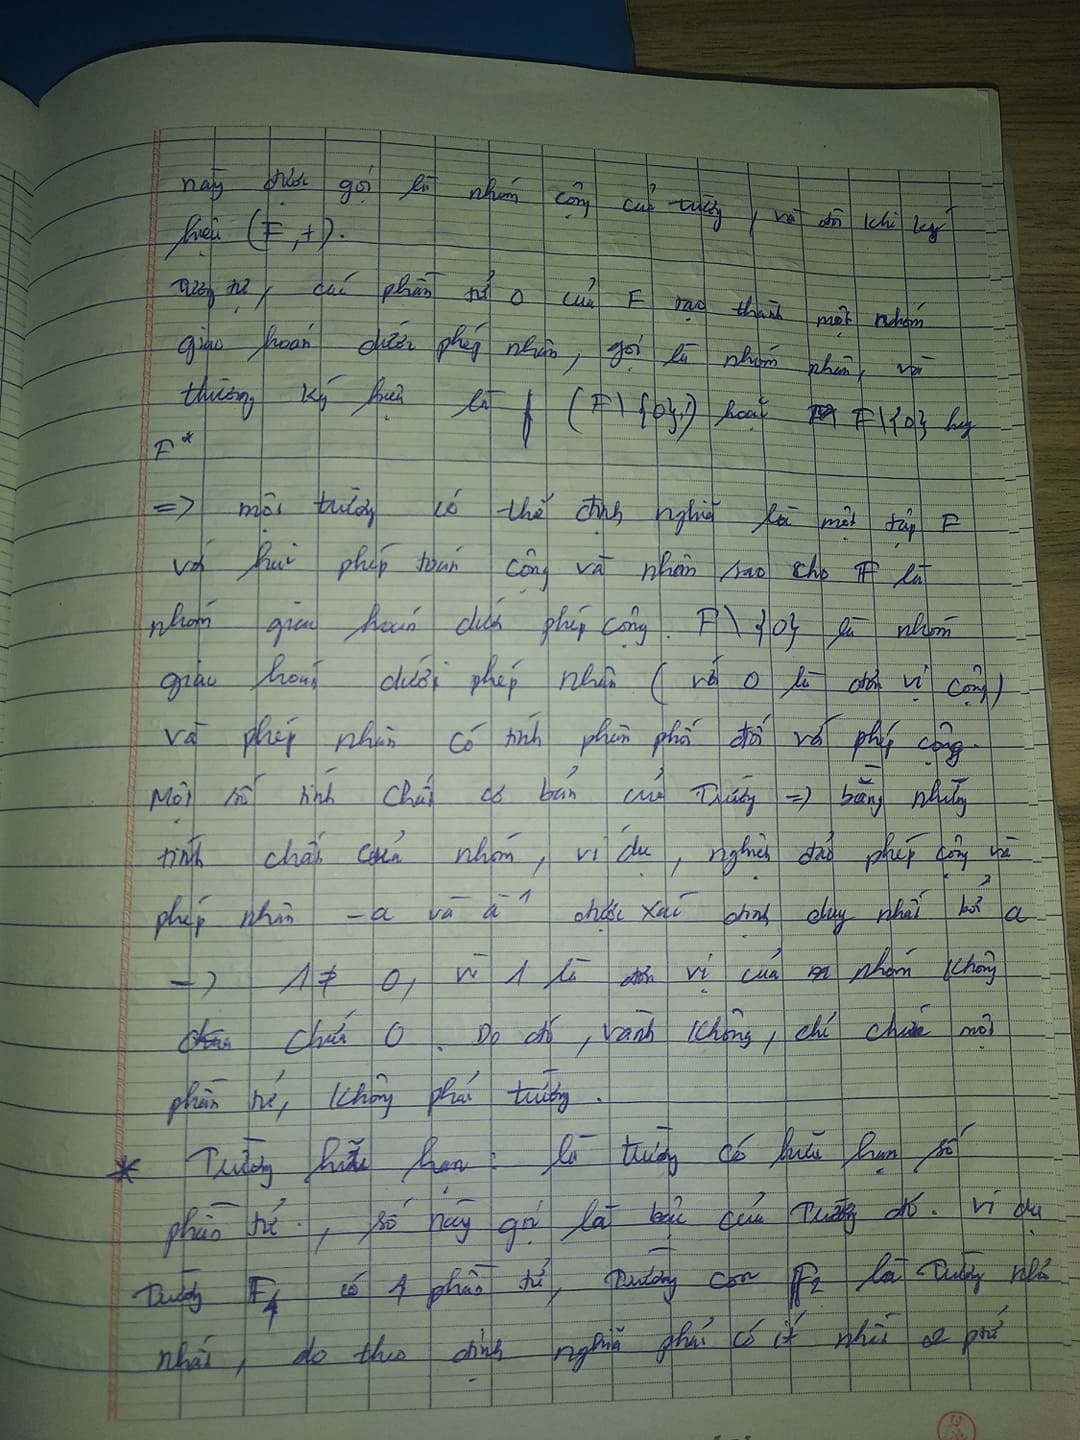 này được gọi là nhóm cộng của trường, và đôi khi ký
hiệu (F,+).
Tương tự, các phần tử 0 của F tạo thành một nhóm
giao hoán dưới phép nhân, gọi là nhóm nhân, và
thường ký hiệu là (F\{0},·) hoặc F\{0} hay
F*
=> một trường có thể định nghĩa là một tập F
với hai phép toán cộng và nhân sao cho F là
nhóm giao hoán dưới phép cộng. F\{0} là nhóm
giao hoán dưới phép nhân (với 0 là đơn vị cộng)
và phép nhân có tính phân phối đối với phép cộng.
Một số tính chất cơ bản của Trường => bằng những
tính chất của nhóm, ví dụ, nghịch đảo phép cộng và
phép nhân -a và a⁻¹ được xác định duy nhất bởi a
=> 1 ≠ 0, vì 1 là đơn vị của nhóm không
chứa 0. Do đó, vành không, chỉ chứa một
phần tử, không phải trường.
* Trường hữu hạn: là trường có hữu hạn số
phần tử, số này gọi là bậc của Trường đó. Ví dụ
Trường F₄ có 4 phần tử, Trường con F₂ là Trường nhỏ
nhất, do theo định nghĩa phải có ít nhất 2 phầ